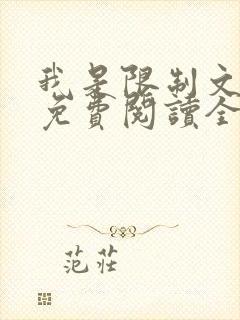 我是限制文
免費閱讀全
范莊